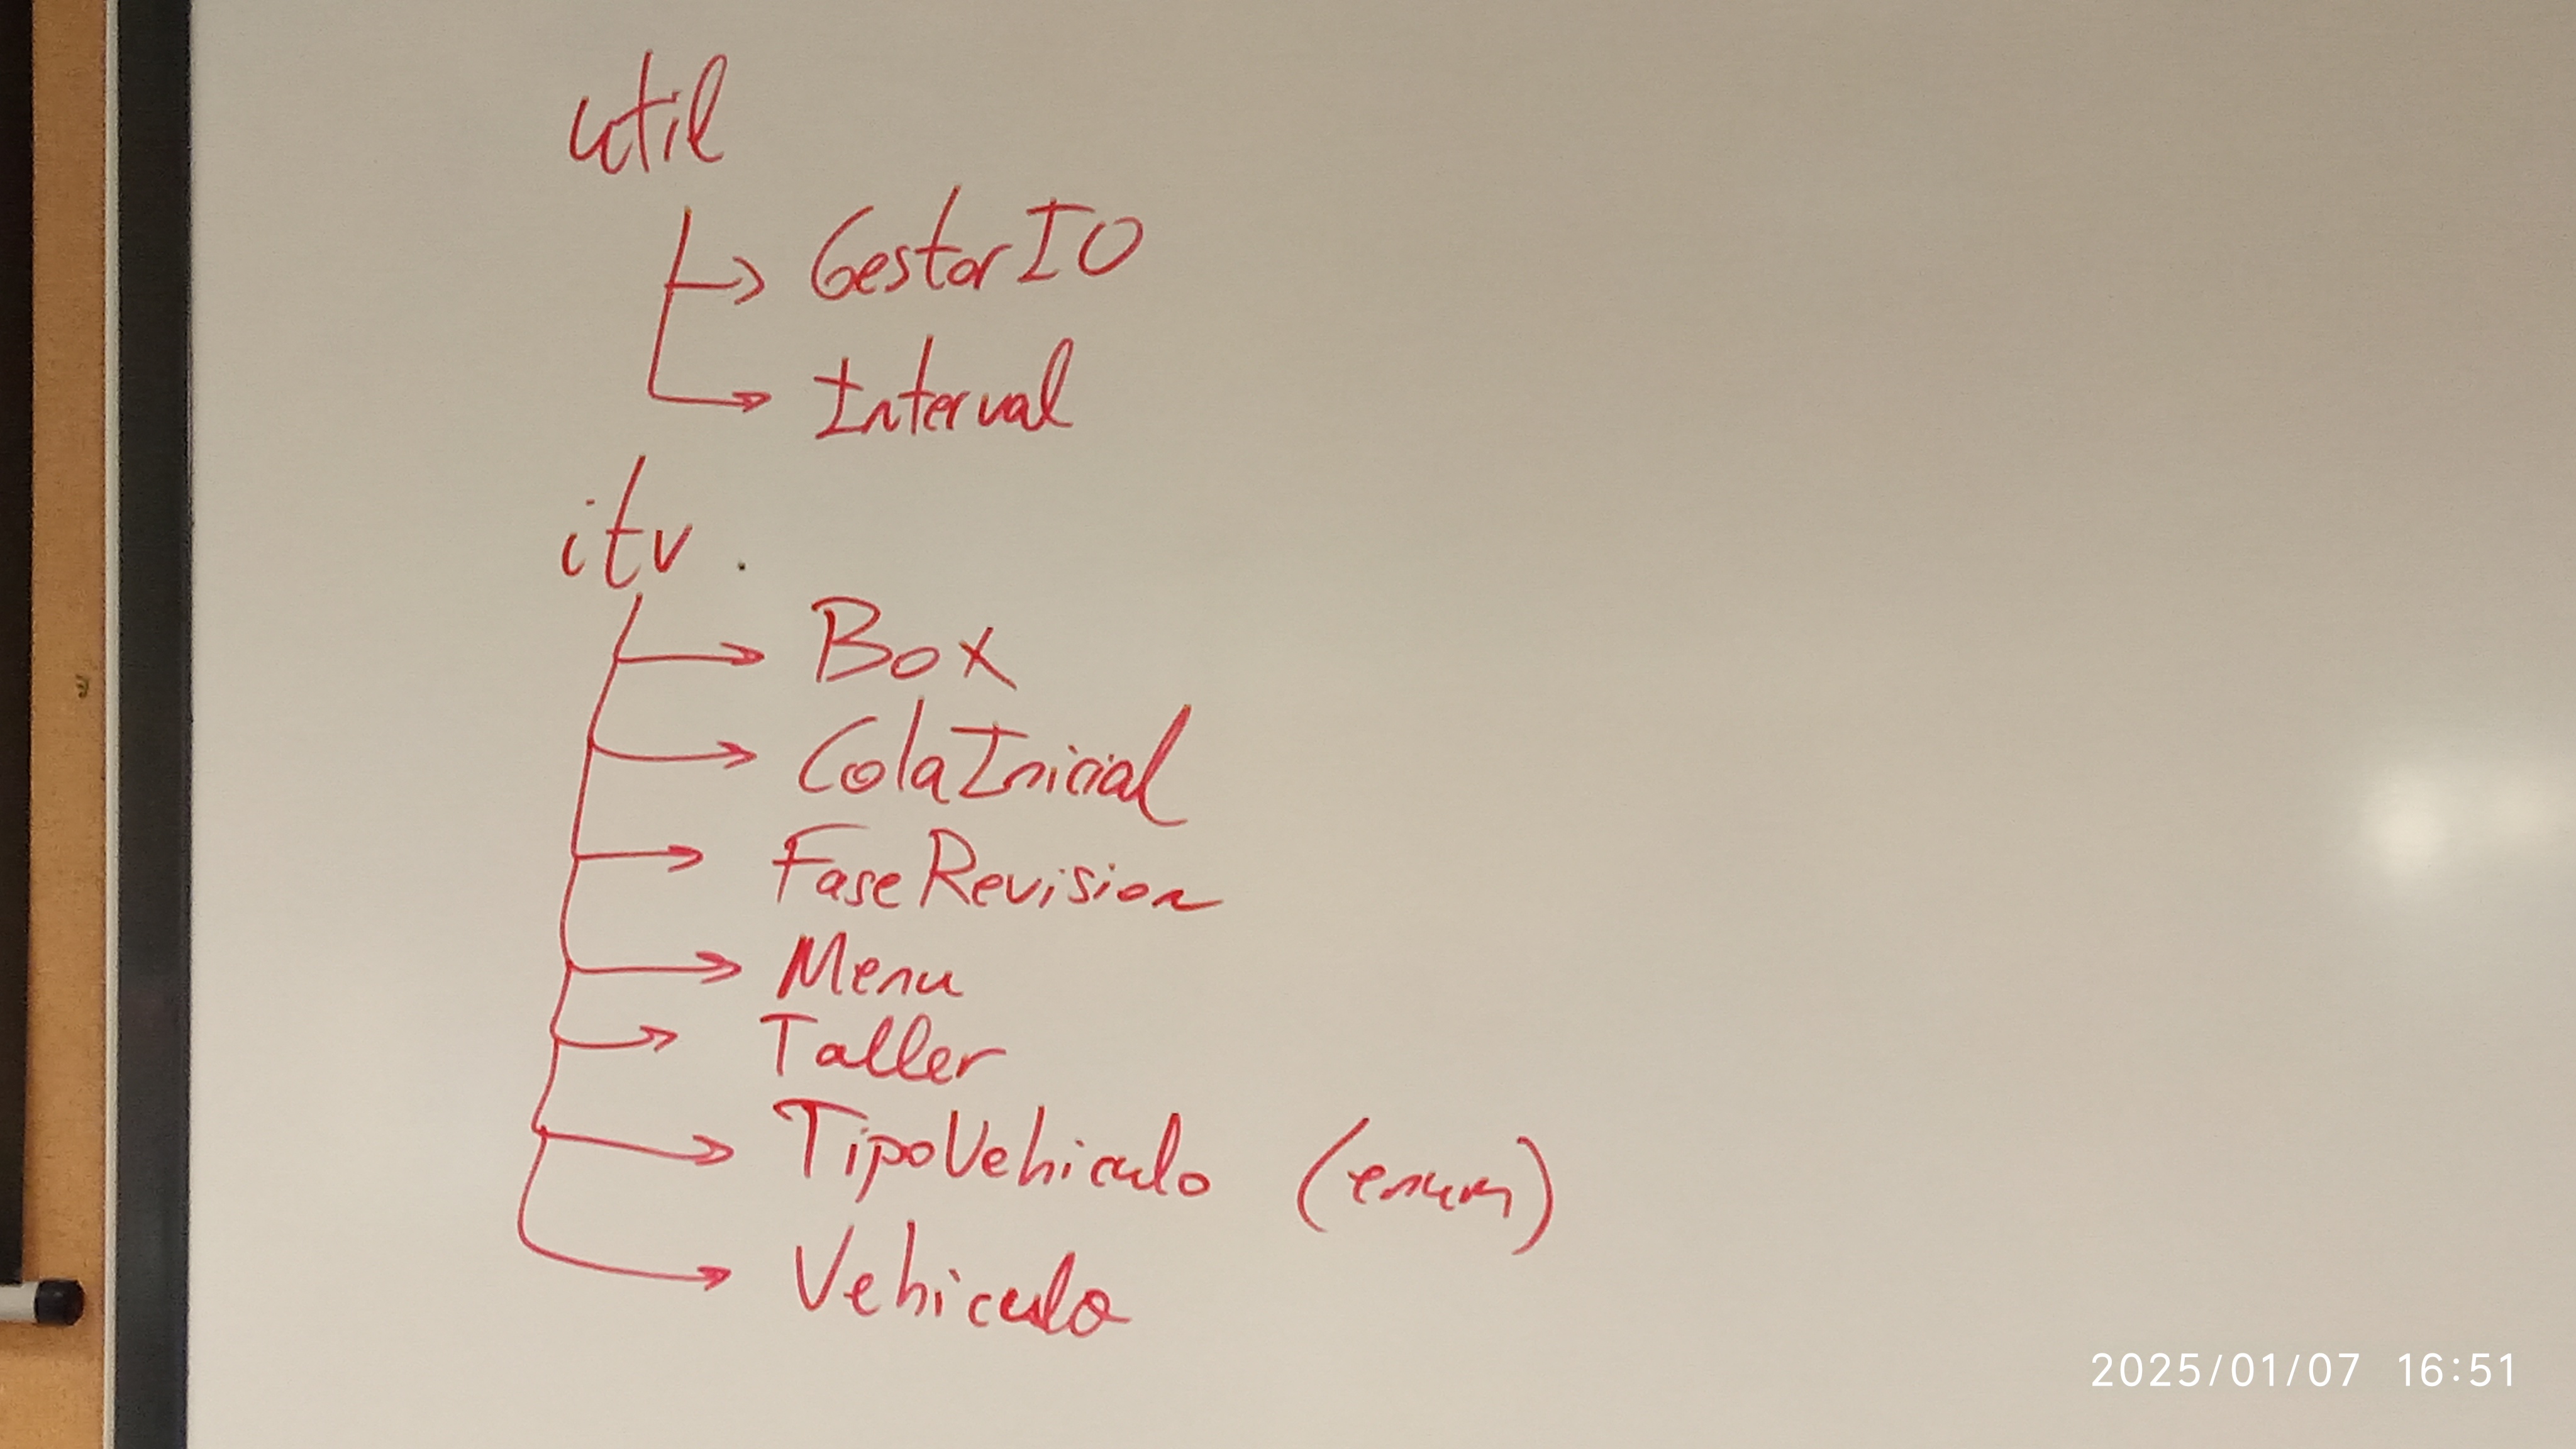 util
GestorIO
Interval
itv .
Box
ColaInicial
FaseRevision
Menu
Taller
TipoVehiculo (enum)
Vehiculo
2025/01/07 16:51